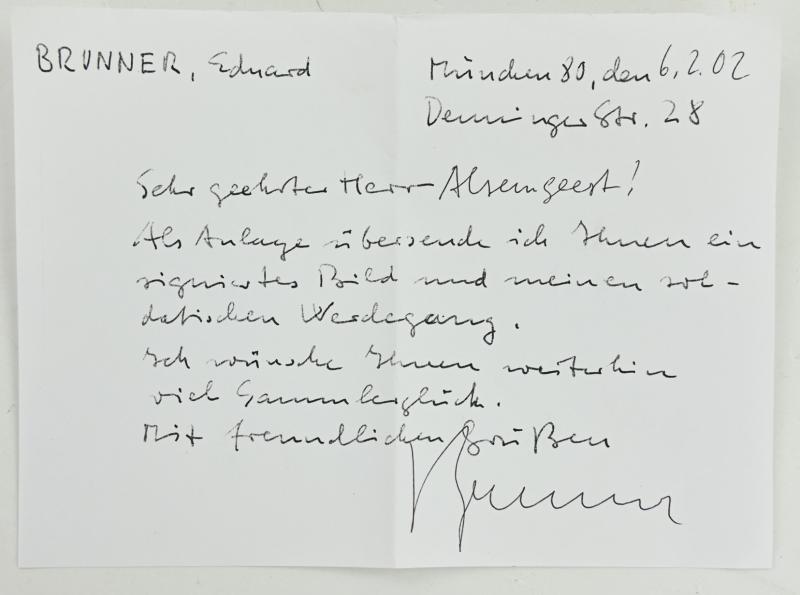 BRUNNER, Eduard
München 80, den 6.2.02
Denninger Str. 28
Sehr geehrter Herr Alsemgeest!
Als Anlage übersende ich Ihnen ein
signiertes Bild und meinen sol-
datischen Werdegang.
Ich wünsche Ihnen weiterhin
viel Sammlerglück.
Mit freundlichen Grüßen
Brunner